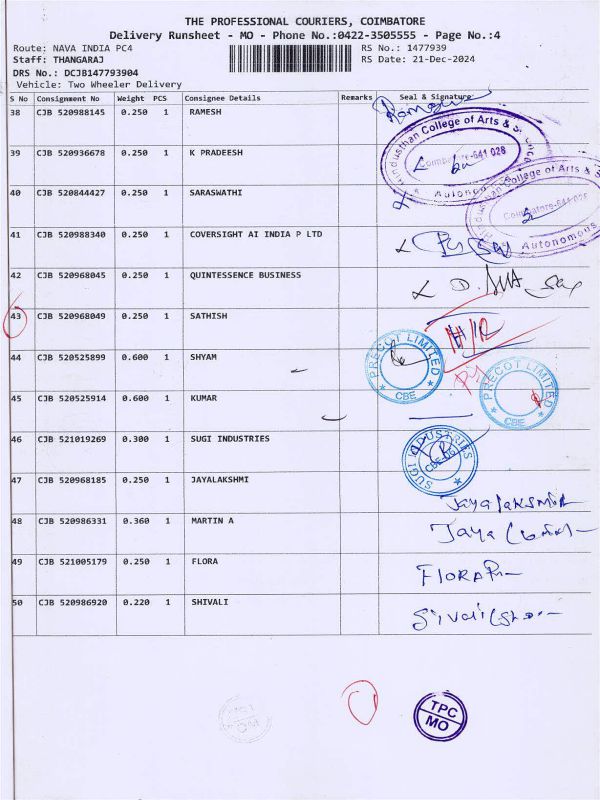 THE PROFESSIONAL COURIERS, COIMBATORE
Delivery Runsheet - MO - Phone No.:0422-3505555 - Page No.:4
Route: NAVA INDIA PC4
RS No.: 1477939
Staff: THANGARAJ
RS Date: 21-Dec-2024
DRS No.: DCJB147793904
Vehicle: Two Wheeler Delivery
S No Consignment No Weight PCS Consignee Details Remarks Seal & Signature
38 CJB 520988145 0.250 1 RAMESH
Hindusthan College of Arts &
Coimbatore-641 028
39 CJB 520936678 0.250 1 K PRADEESH
40 CJB 520844427 0.250 1 SARASWATHI
College of Arts & S
Coimbatore-641 028
Autonomous
41 CJB 520988340 0.250 1 COVERSIGHT AI INDIA P LTD
42 CJB 520968045 0.250 1 QUINTESSENCE BUSINESS
43 CJB 520968049 0.250 1 SATHISH
44 CJB 520525899 0.600 1 SHYAM
PRECOT LIMITED
CBE
45 CJB 520525914 0.600 1 KUMAR
PRECOT LIMITED
CBE
46 CJB 521019269 0.300 1 SUGI INDUSTRIES
SUGI INDUSTRIES
47 CJB 520968185 0.250 1 JAYALAKSHMI
48 CJB 520986331 0.360 1 MARTIN A
Jaya
49 CJB 521005179 0.250 1 FLORA
FLORA
50 CJB 520986920 0.220 1 SHIVALI
TPC
MO